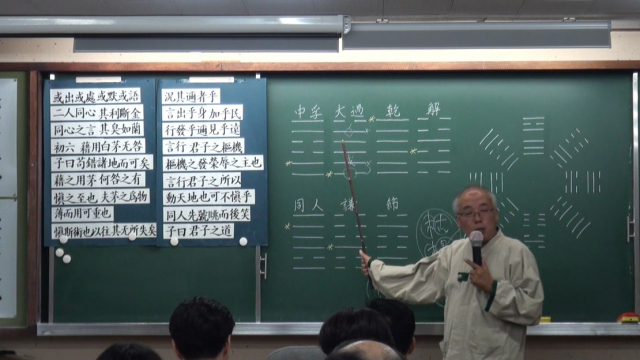 況其邇者乎
言出乎身加乎民
行發乎邇見乎遠
言行君子之樞機
樞機之發榮辱之主也
言行君子之所以
動天地也可不慎乎
同人先號咷而後笑
子曰君子之道
或出或處或默或語
二人同心其利斷金
同心之言其臭如蘭
初六藉用白茅无咎
子曰苟錯諸地而可矣
藉之用茅何咎之有
慎之至也夫茅之為物
薄而用可重也
慎斯術也以往其无所失矣
中孚 大過 乾 解
同人 謙 節